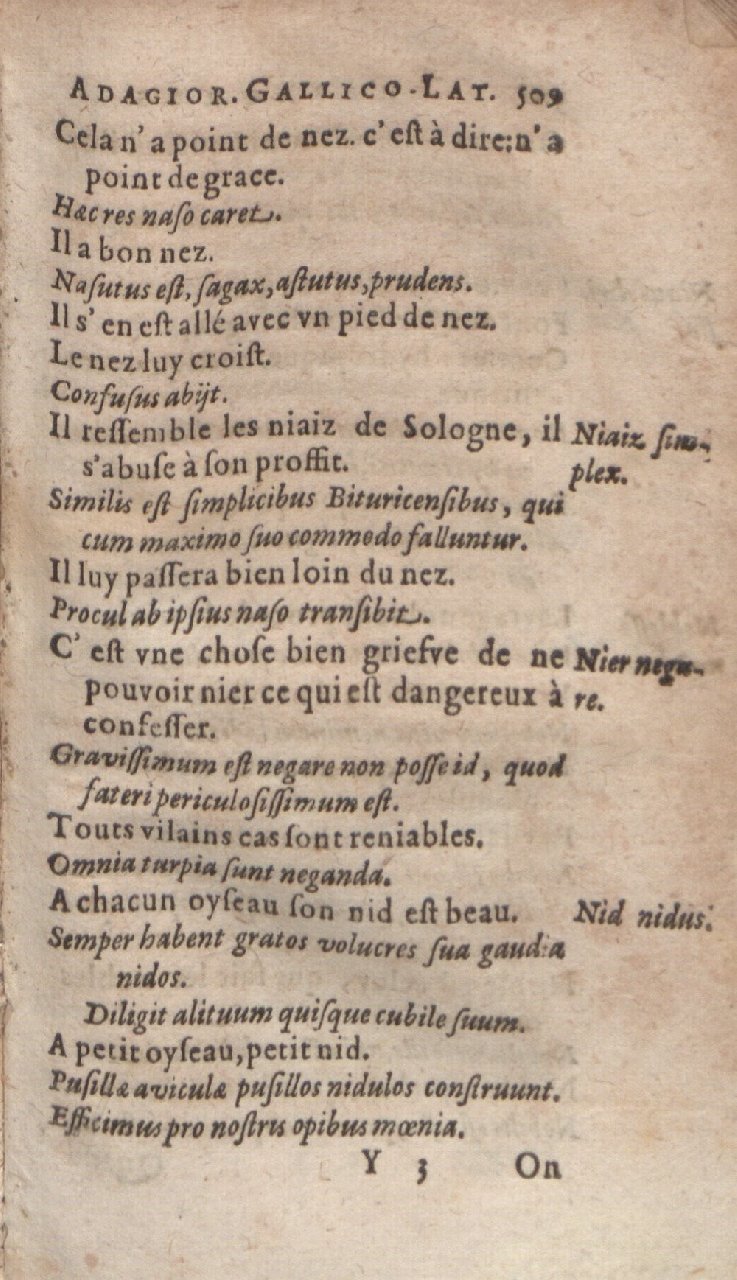 ADAGIOR. GALLICO-LAT. 509
Cela n'a point de nez. c'eſt à dire: n'a
point de grace.
Hæc res naſo caret.
Il a bon nez.
Naſutus eſt, ſagax, aſtutus, prudens.
Il s'en eſt allé avec vn pied de nez.
Le nez luy croiſt.
Confuſus abijt.
Il reſſemble les niaiz de Sologne, il
s'abuſe à ſon proffit.
Niaiz ſim-
plex.
Similis eſt ſimplicibus Bituricenſibus, qui
cum maximo ſuo commodo falluntur.
Il luy paſſera bien loin du nez.
Procul ab ipſius naſo tranſibit.
C'eſt vne choſe bien griefve de ne
pouvoir nier ce qui eſt dangereux à
confeſſer.
Nier nega-
re.
Graviſſimum eſt negare non poſſe id, quod
fateri periculoſiſſimum eſt.
Touts vilains cas ſont reniables.
Omnia turpia ſunt neganda.
A chacun oyſeau ſon nid eſt beau.
Nid nidus.
Semper habent gratos volucres ſua gaudia
nidos.
Diligit alituum quiſque cubile ſuum.
A petit oyſeau, petit nid.
Puſillæ aviculæ puſillos nidulos conſtruunt.
Efficimus pro noſtris opibus mœnia.
Y 3 On